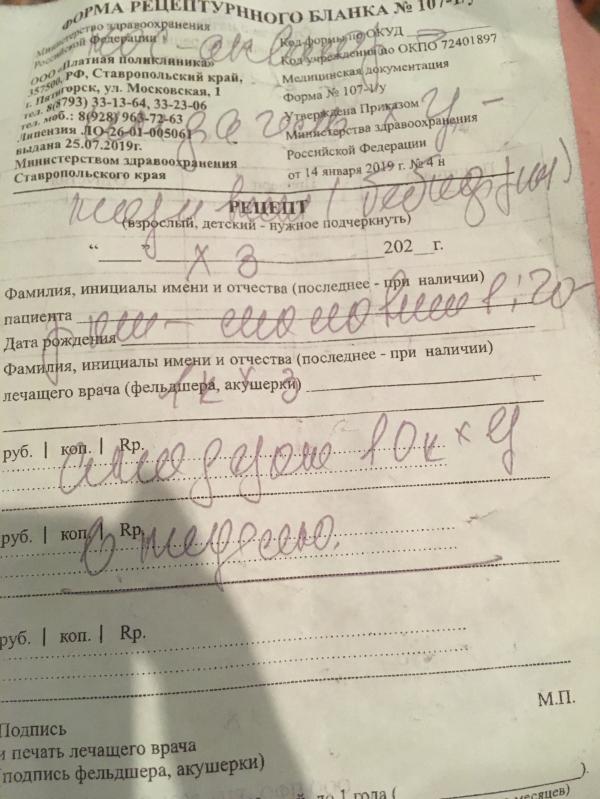 ФОРМА РЕЦЕПТУРННОГО БЛАНКА № 107-1/у
Министерство здравоохранения
Российской Федерации
ООО «Платная поликлиника»
357500, РФ, Ставропольский край,
г. Пятигорск, ул. Московская, 1
тел. 8(8793) 33-13-64, 33-23-06
тел. моб.: 8(928) 963-72-63
Лицензия ЛО-26-01-005061
выдана 25.07.2019г.
Министерством здравоохранения
Ставропольского края
Код формы по ОКУД
Код учреждения по ОКПО 72401897
Медицинская документация
Форма № 107-1/у
Утверждена Приказом
Министерства здравоохранения
Российской Федерации
от 14 января 2019 г. № 4 н
РЕЦЕПТ
(взрослый, детский - нужное подчеркнуть)
“____” 202__г.
х 3
Фамилия, инициалы имени и отчества (последнее - при наличии)
пациента
Дата рождения
Фамилия, инициалы имени и отчества (последнее - при наличии)
лечащего врача (фельдшера, акушерки)
1к х 3
руб. | коп. | Rp.
10к х 4
руб. | коп. | Rp.
руб. | коп. | Rp.
М.П.
Подпись
и печать лечащего врача
(подпись фельдшера, акушерки)
до 1 года (
).
месяцев)